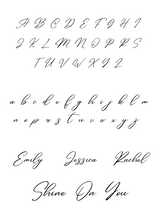 A B C D E F G H I
J K L M N O P R S
T U V W X Y Z
a b c d e f g h i j k l m
n o p q r s t u v w x y z
Emily Jessica Rachel
Shine On You